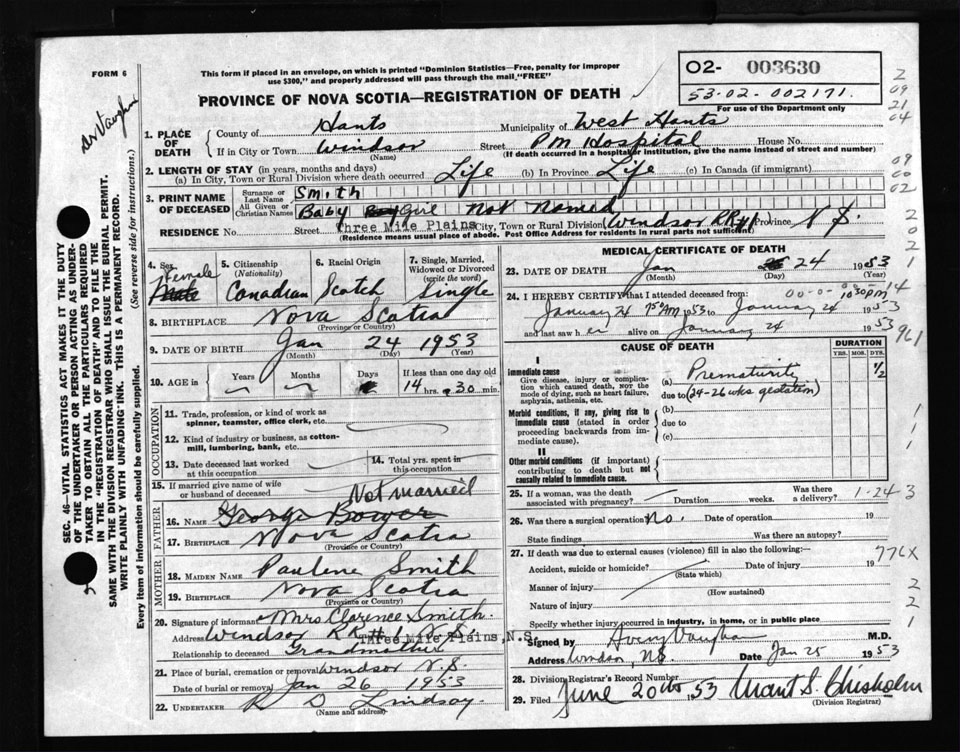 FORM 6
This form if placed in an envelope, on which is printed "Dominion Statistics—Free, penalty for improper
use $300," and properly addressed will pass through the mail "FREE"
PROVINCE OF NOVA SCOTIA—REGISTRATION OF DEATH
O2- 003630
53-02-002171.
For use of the Department only
2
09
21
04
09
00
02
2
0
2
1
Dr Vaughan
SEC. 46—VITAL STATISTICS ACT MAKES IT THE DUTY
OF THE UNDERTAKER OR PERSON ACTING AS UNDER-
TAKER TO OBTAIN ALL THE PARTICULARS REQUIRED
IN THE "REGISTRATION OF DEATH" AND TO FILE THE
SAME WITH THE DIVISION REGISTRAR WHO SHALL ISSUE THE BURIAL PERMIT.
WRITE PLAINLY WITH UNFADING INK. THIS IS A PERMANENT RECORD.
Every item of information should be carefully supplied. (See reverse side for instructions.)
1. PLACE OF DEATH
County of Hants Municipality of West Hants
If in City or Town Windsor Street PM Hospital House No.
(Name) (If death occurred in a hospital or institution, give the name instead of street and number)
2. LENGTH OF STAY (in years, months and days)
(a) In City, Town or Rural Division where death occurred Life (b) In Province Life (c) In Canada (if immigrant)
3. PRINT NAME OF DECEASED
Surname or Last Name Smith
All Given or Christian Names Baby Boy Girl Not Named
RESIDENCE No. Street Three Mile Plains City, Town or Rural Division Windsor RR#1 Province N S.
(Residence means usual place of abode. Post Office Address for residents in rural parts not sufficient)
4. Sex Female Male
5. Citizenship (Nationality) Canadian
6. Racial Origin Scotch
7. Single, Married, Widowed or Divorced (write the word) Single
8. BIRTHPLACE Nova Scotia
(Province or Country)
9. DATE OF BIRTH Jan 24 1953
(Month) (Day) (Year)
10. AGE in Years Months Days If less than one day old
14 hrs. 30 min.
OCCUPATION
11. Trade, profession, or kind of work as
spinner, teamster, office clerk, etc.
12. Kind of industry or business, as cotton-
mill, lumbering, bank, etc.
13. Date deceased last worked
at this occupation
14. Total yrs. spent in
this occupation
15. If married give name of wife
or husband of deceased
Not married
FATHER
16. NAME George Bower
17. BIRTHPLACE Nova Scotia
(Province or Country)
MOTHER
18. MAIDEN NAME Paulene Smith
19. BIRTHPLACE Nova Scotia
(Province or Country)
20. Signature of informant Mrs Clarence Smith.
Address Windsor RR#1 N.S. Three Mile Plains, N.S.
Relationship to deceased Grandmother
21. Place of burial, cremation or removal Windsor N.S.
Date of burial or removal Jan 26 1953
22. UNDERTAKER R D Lindsay.
(Name and address)
MEDICAL CERTIFICATE OF DEATH
23. DATE OF DEATH Jan 24 1953
(Month) (Day) (Year)
24. I HEREBY CERTIFY that I attended deceased from:
00-0-00-14
10:30 PM
January 24 7:50 AM 1953 to January 24 1953
and last saw her alive on January 24 1953
961
CAUSE OF DEATH
DURATION
YRS. MOS. DYS.
I
Immediate cause
Give disease, injury or complica-
tion which caused death, NOT the
mode of dying, such as heart failure,
asphyxia, asthenia, etc.
(a) Prematurity 1/2
due to (24-26 wks gestation)
Morbid conditions, if any, giving rise to
immediate cause (stated in order
proceeding backwards from im-
mediate cause).
(b)
due to
(c)
1
1
1
II
Other morbid conditions (if important)
contributing to death but not
causally related to immediate cause.
25. If a woman, was the death
associated with pregnancy? Duration weeks. Was there
a delivery? 1-24 3
26. Was there a surgical operation No. Date of operation 19
State findings Was there an autopsy?
27. If death was due to external causes (violence) fill in also the following:—
776X
Accident, suicide or homicide? Date of injury 19
(State which)
Manner of injury
(How sustained)
Nature of injury
2
2
1
Specify whether injury occurred in industry, in home, or in public place
Signed by Avery Vaughan M.D.
Address Windsor, N.S. Date Jan 25 1953
28. Division Registrar's Record Number
29. Filed June 20th 1953 Grant S. Chisholm
(Division Registrar)